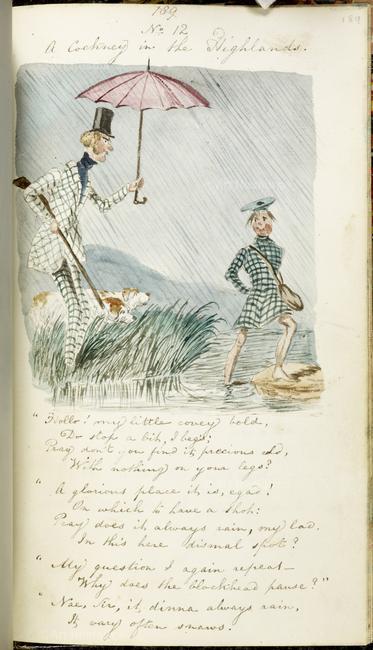 189
189
No. 12
A Cockney in the Highlands.
"Hollo! my little covey bold,
Do stop a bit, I begs;
Pray don't you find it precious cold,
With nothing on your legs?
"A glorious place it is, egad!
On which to have a shot:
Pray does it always rain, my lad,
In this here dismal spot?
"My question I again repeat—
Why does the blockhead pause?"
"Nae, Sir, it dinna always rain,
It vary often snaws.